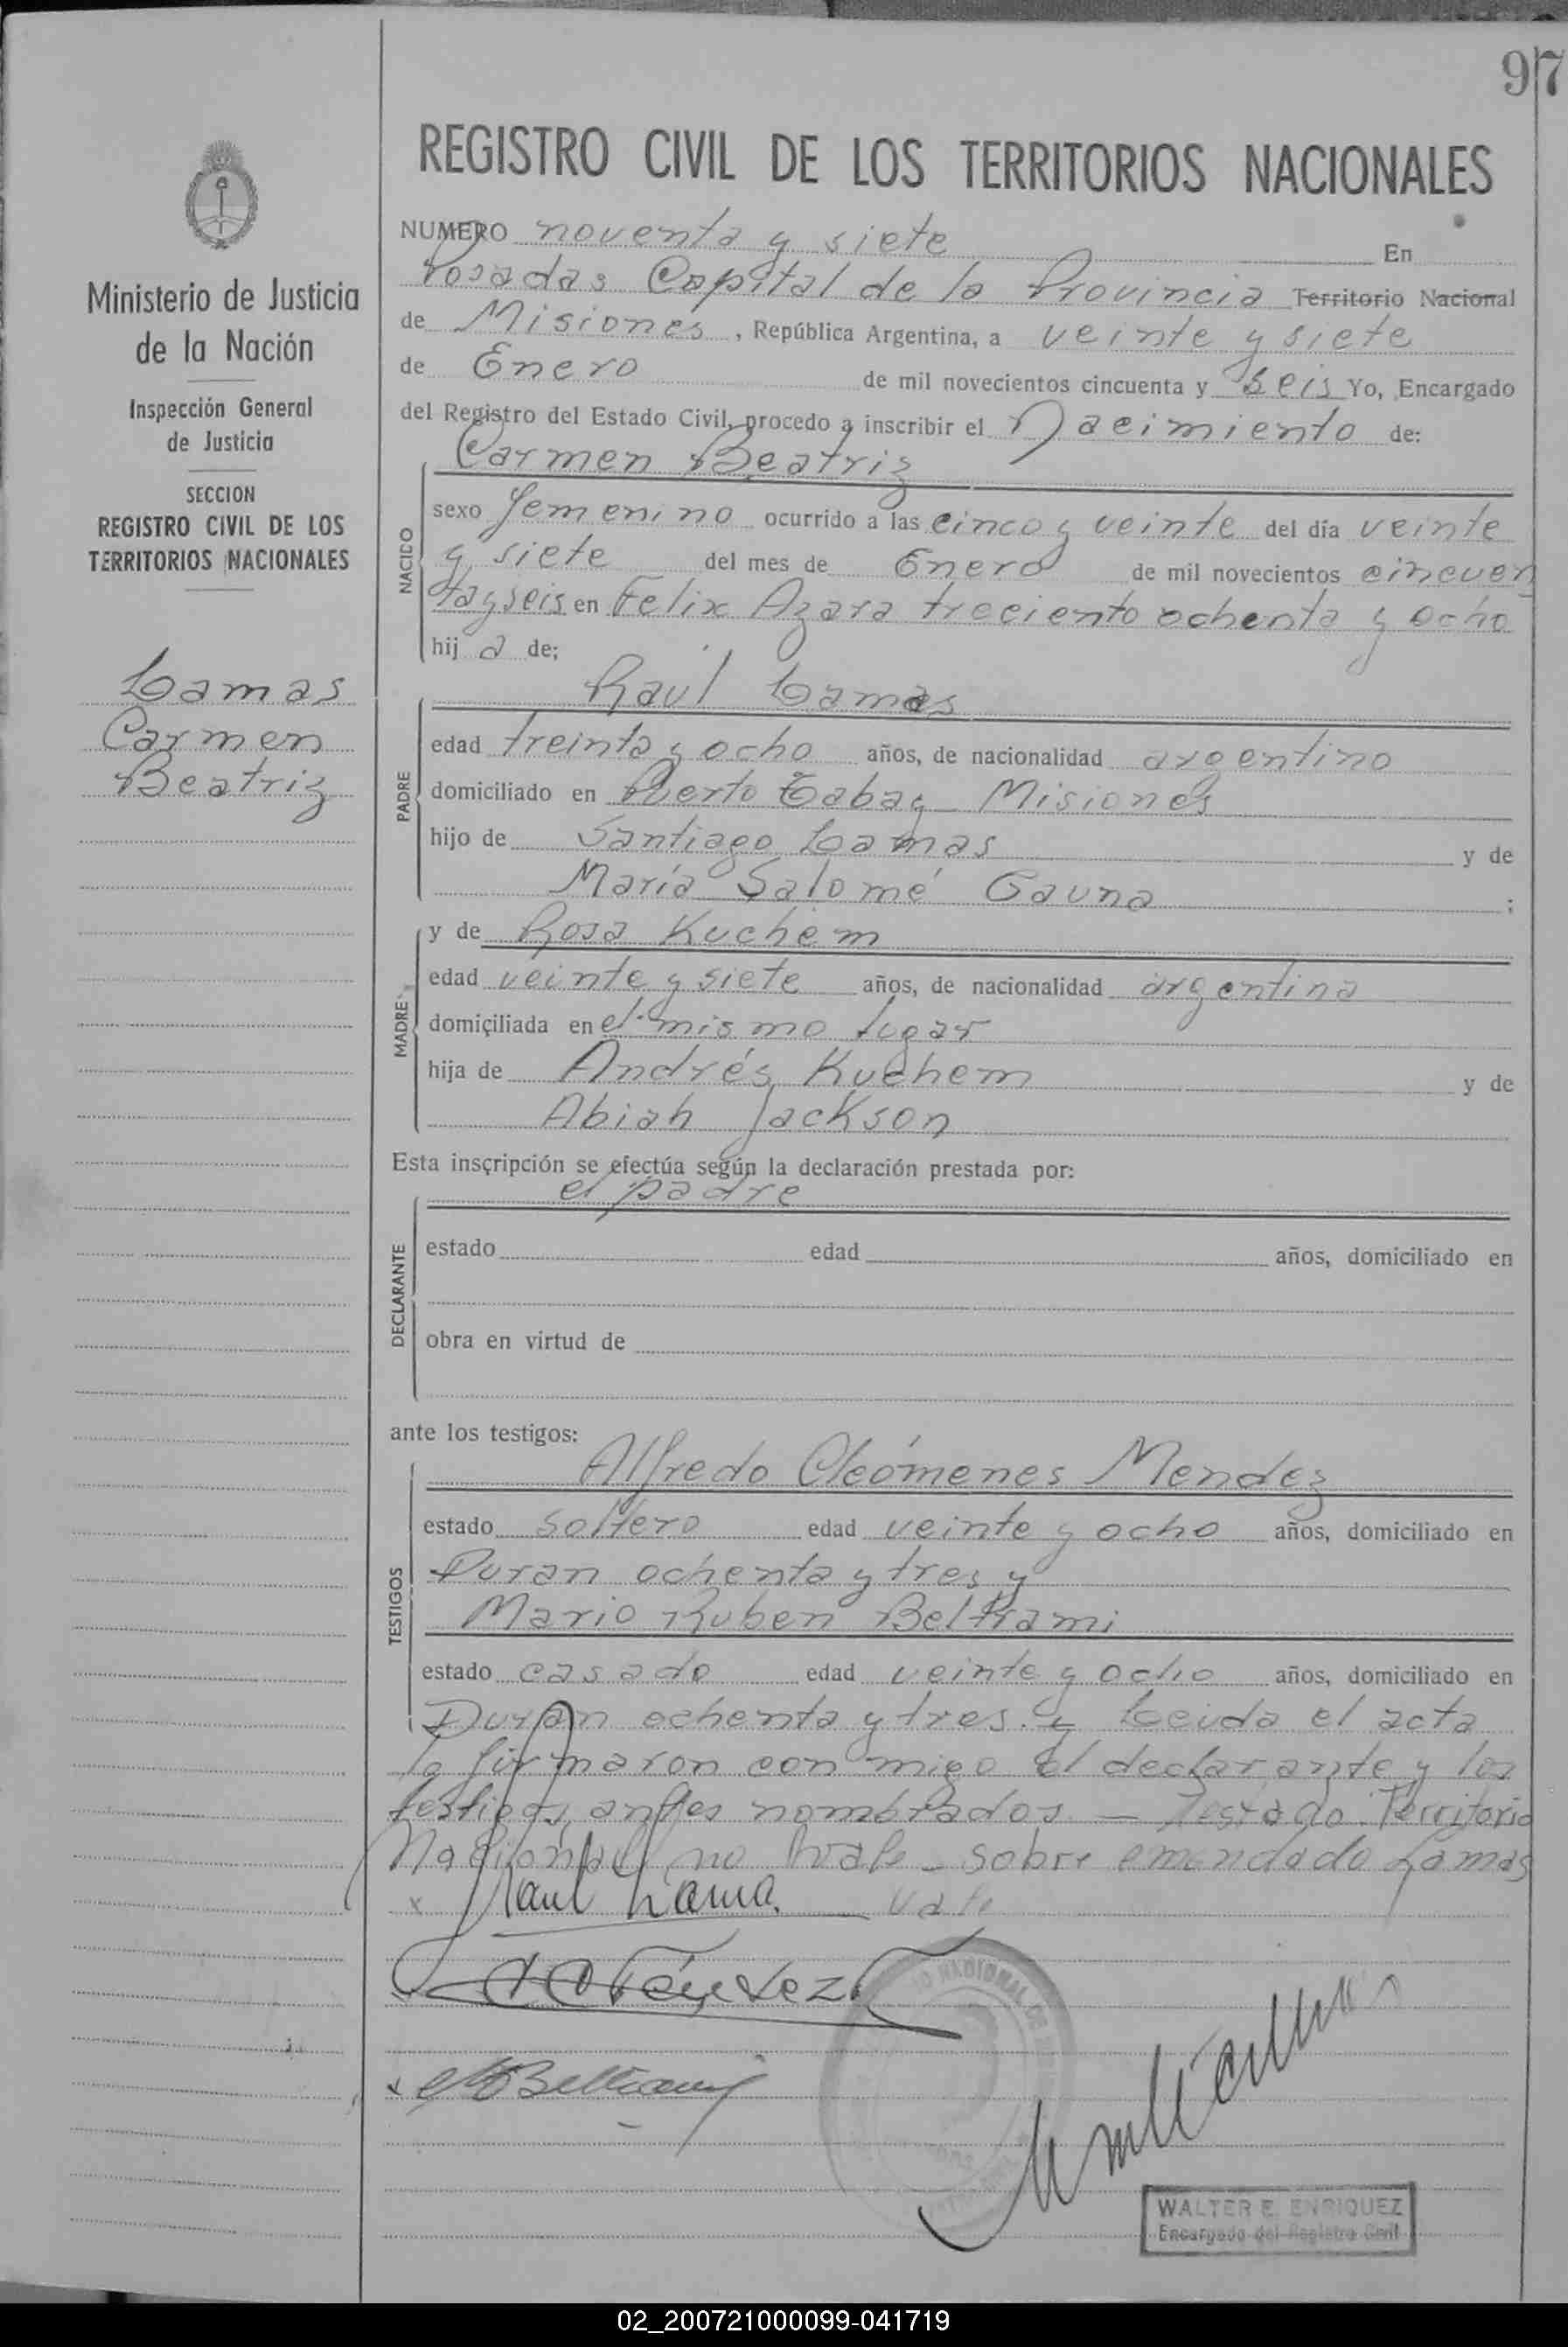 97
REGISTRO CIVIL DE LOS TERRITORIOS NACIONALES
Ministerio de Justicia
de la Nación
Inspección General
de Justicia
SECCION
REGISTRO CIVIL DE LOS
TERRITORIOS NACIONALES
Lamas
Carmen
Beatriz
NUMERO noventa y siete En
Posadas Capital de la Provincia Territorio Nacional
de Misiones, República Argentina, a veinte y siete
de Enero de mil novecientos cincuenta y seis Yo, Encargado
del Registro del Estado Civil, procedo a inscribir el Nacimiento de:
Carmen Beatriz
NACIDO
sexo femenino ocurrido a las cinco y veinte del día veinte
y siete del mes de Enero de mil novecientos cincuen
tayseis en Felix Azara treciento ochenta y ocho
hij a de;
Raul Lamas
PADRE
edad treinta y ocho años, de nacionalidad argentino
domiciliado en Puerto Tabay Misiones
hijo de Santiago Lamas y de
María Salomé Gauna ;
y de Rosa Kuchem
MADRE
edad veinte y siete años, de nacionalidad argentina
domiciliada en el mismo lugar
hija de Andrés Kuchem y de
Abiah Jackson
Esta inscripción se efectúa según la declaración prestada por:
el padre
DECLARANTE
estado edad años, domiciliado en
obra en virtud de
ante los testigos:
Alfredo Cleómenes Mendez
TESTIGOS
estado soltero edad veinte y ocho años, domiciliado en
Duran ochenta y tres y
Mario Ruben Beltrami
estado casado edad veinte y ocho años, domiciliado en
Duran ochenta y tres. y Leida el acta
la firmaron con migo el declarante y los
testigos antes nombrados — Testado: Territorio
Nacional no vale - sobre emendado Lamas
x Raul Lama. vale
x Beltrami
WALTER E. ENRIQUEZ
Encargado del Registro Civil
02_200721000099-041719